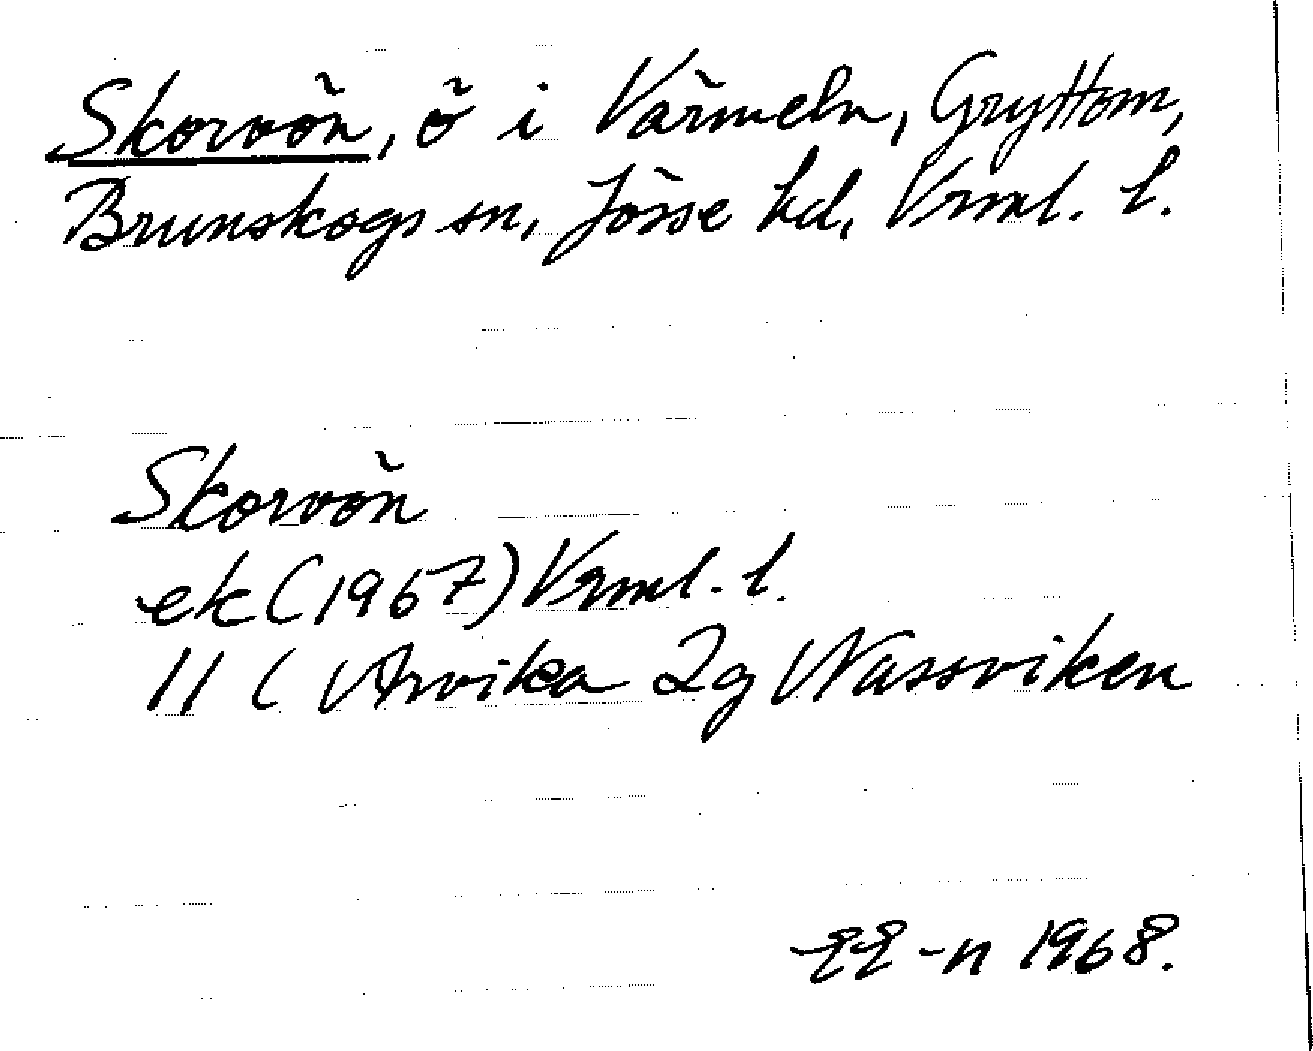 Skorvön, ö i Värmeln, Gryttom,
Brunskogs sn, Jösse hd, Vrml. l.
Skorvön
ek (1967) Vrml. l.
11 C Arvika 2g Nassviken
-n 1968.